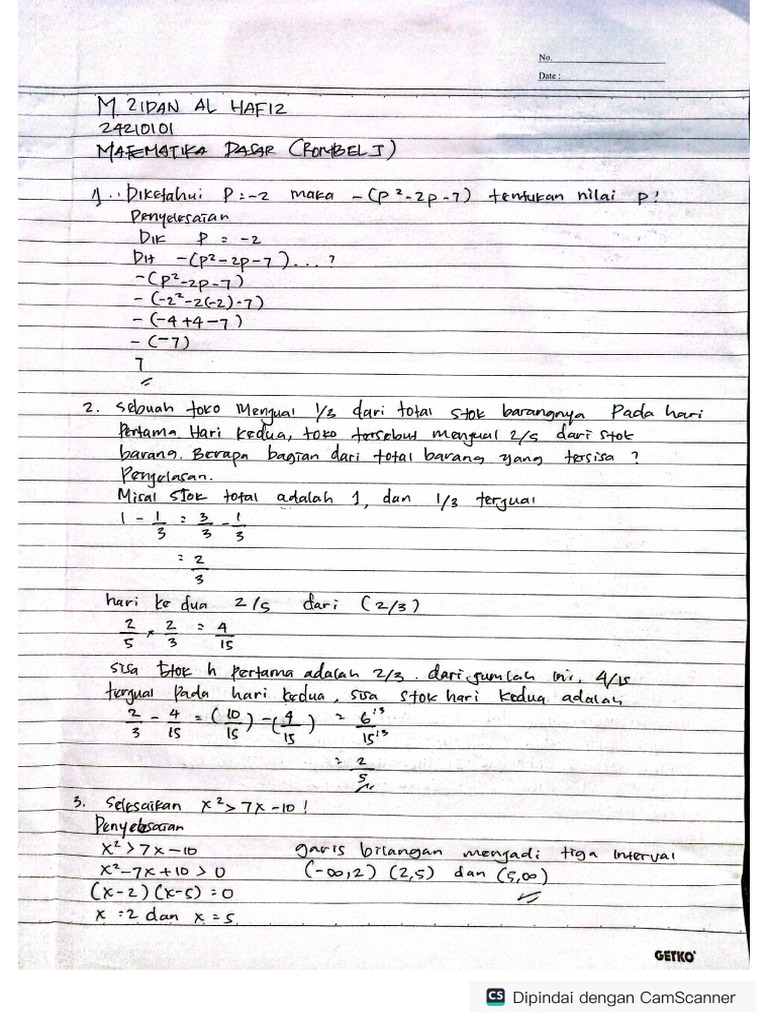 No.
Date :
M. ZIDAN AL HAFIZ
24210101
MATEMATIKA DASAR (ROMBEL I)
1. Diketahui P = -2 maka -(p²-2p-7) tentukan nilai p!
Penyelesaian
Dik P = -2
Dit -(p²-2p-7)...?
-(p²-2p-7)
-(-2²-2(-2)-7)
-(-4+4-7)
-(-7)
7
2. Sebuah toko Menjual 1/3 dari total stok barangnya Pada hari
Pertama. Hari kedua, toko tersebut menjual 2/5 dari stok
barang. Berapa bagian dari total barang yang tersisa ?
Penjelasan.
Misal stok total adalah 1, dan 1/3 terjual
1 - 1/3 = 3/3 - 1/3
= 2/3
hari ke dua 2/5 dari (2/3)
2/5 × 2/3 = 4/15
sisa stok h pertama adalah 2/3. dari jumlah ini, 4/15
terjual Pada hari kedua, sisa stok hari kedua adalah
2/3 - 4/15 = (10/15) - (4/15) = 6:3/15:3
= 2/5
3. Selesaikan x² > 7x - 10 !
Penyelesaian
x² > 7x - 10 garis bilangan menjadi tiga interval
x² - 7x + 10 > 0 (-∞,2) (2,5) dan (5,∞)
(x-2) (x-5) = 0
x = 2 dan x = 5
GETKO
CS Dipindai dengan CamScanner